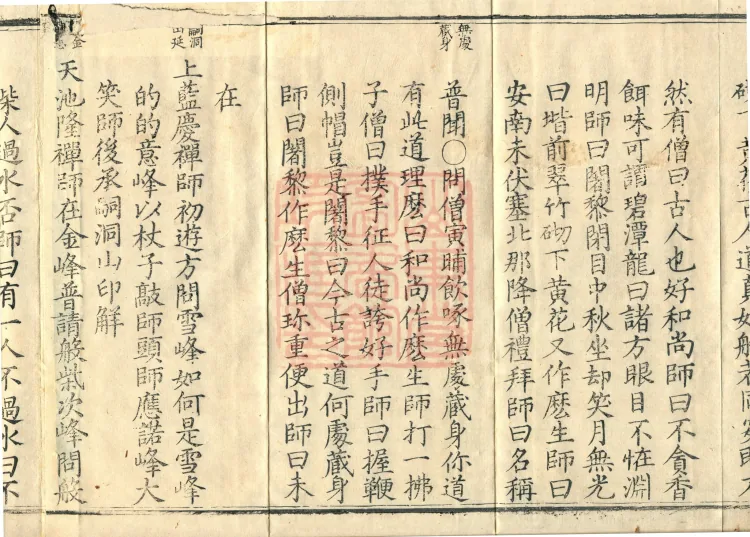 古人道真如般若
然有僧曰古人也好和尚師曰不貪香
餌味可謂碧潭龍曰諸方眼目不恠淵
明師曰闍黎閉目中秋坐却笑月無光
曰堦前翠竹砌下黄花又作麽生師曰
安南未伏塞北那降僧禮拜師曰名稱
無處
蔵身
普聞○問僧寅晡飲啄無處蔵身你道
有此道理麽曰和尚作麽生師打一拂
子僧曰撲手征人徒誇好手師曰握鞭
側帽豈是闍黎曰今古之道何處蔵身
師曰闍黎作麽生僧珎重便出師曰未
在
嗣洞
山延
上藍慶禪師初遊方問雪峰如何是雪峰
的的意峰以杖子敲師頭師應諾峰大
笑師後承嗣洞山印解
金
天池隆禪師在金峰普請般柴次峰問般
柴人過水否師曰有一人不過水曰不